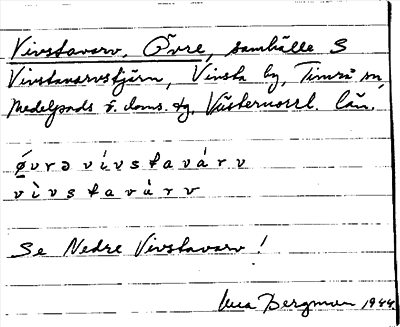 Vivstavarv, Övre, samhälle S
Vivstavarvstjärn, Vivsta by, Timrå sn,
Medelpads ö. doms. tg. Västernorrl. län.
ǿvrə vívstavárv
vìvstavárv
Se Nedre Vivstavarv!
Bergman 1944.